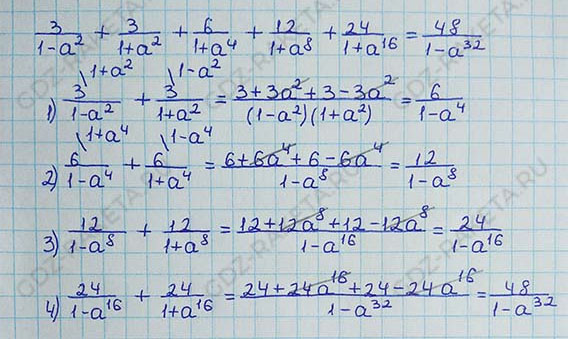 3/(1-a²) + 3/(1+a²) + 6/(1+a⁴) + 12/(1+a⁸) + 24/(1+a¹⁶) = 48/(1-a³²)
1) 3\1+a²/(1-a²) + 3\1-a²/(1+a²) = (3+3a²+3-3a²)/((1-a²)(1+a²)) = 6/(1-a⁴)
2) 6\1+a⁴/(1-a⁴) + 6\1-a⁴/(1+a⁴) = (6+6a⁴+6-6a⁴)/(1-a⁸) = 12/(1-a⁸)
3) 12/(1-a⁸) + 12/(1+a⁸) = (12+12a⁸+12-12a⁸)/(1-a¹⁶) = 24/(1-a¹⁶)
4) 24/(1-a¹⁶) + 24/(1+a¹⁶) = (24+24a¹⁶+24-24a¹⁶)/(1-a³²) = 48/(1-a³²)